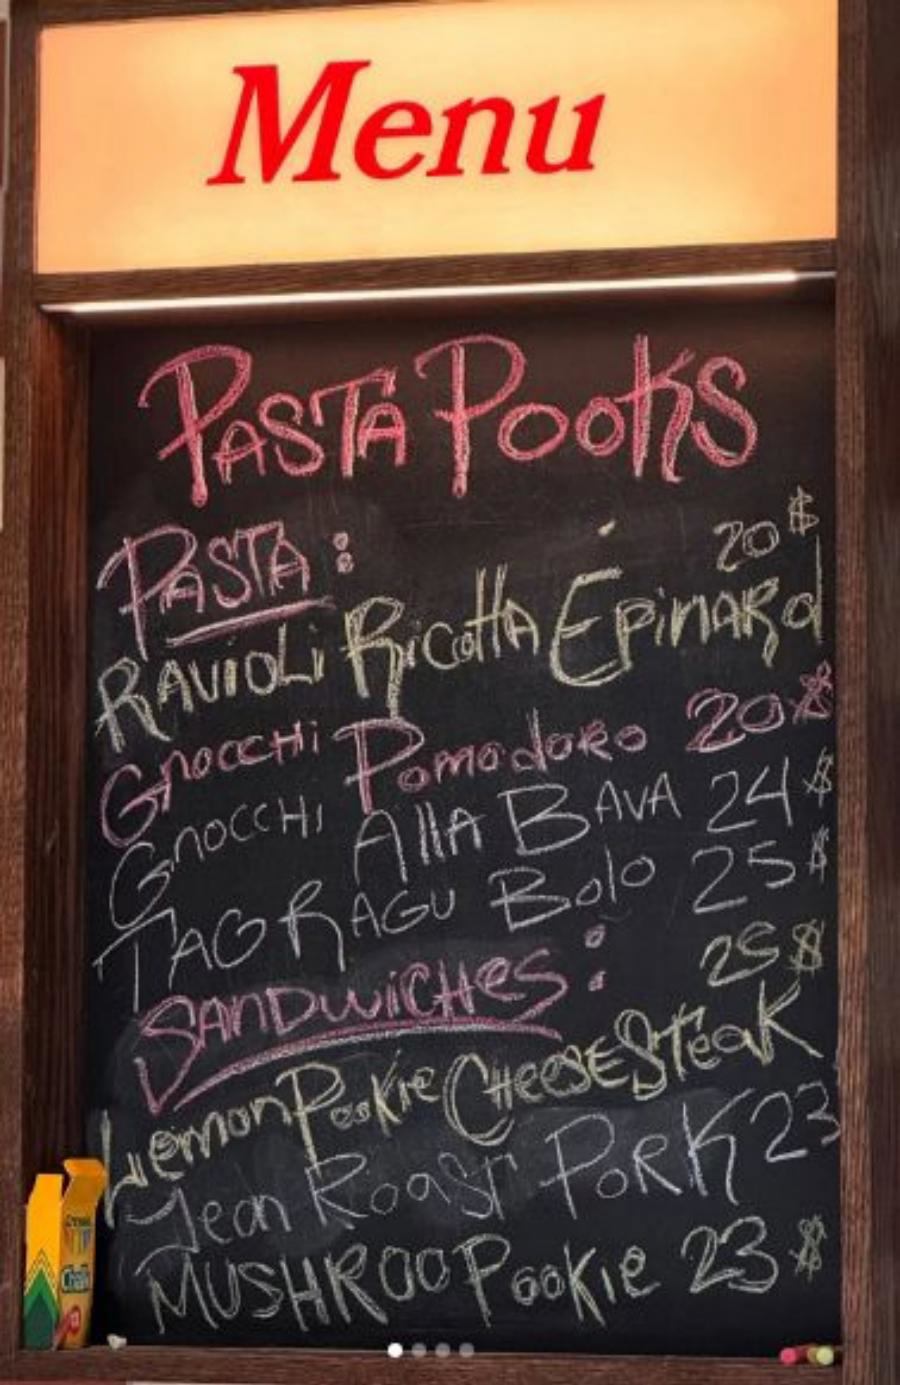 Menu
PASTA POOKS
PASTA :
20$
RAVIOLI RICOTTA ÉPINARd
GNOCCHI POMODORO 20$
GNOCCHI ALLA BAVA 24$
TAG RAGU BOLO 25$
SANDWICHES :
25$
Lemon Pookie CHEESESTEAK
Jean ROAST PORK 23
MUSHROO POOKIE 23$